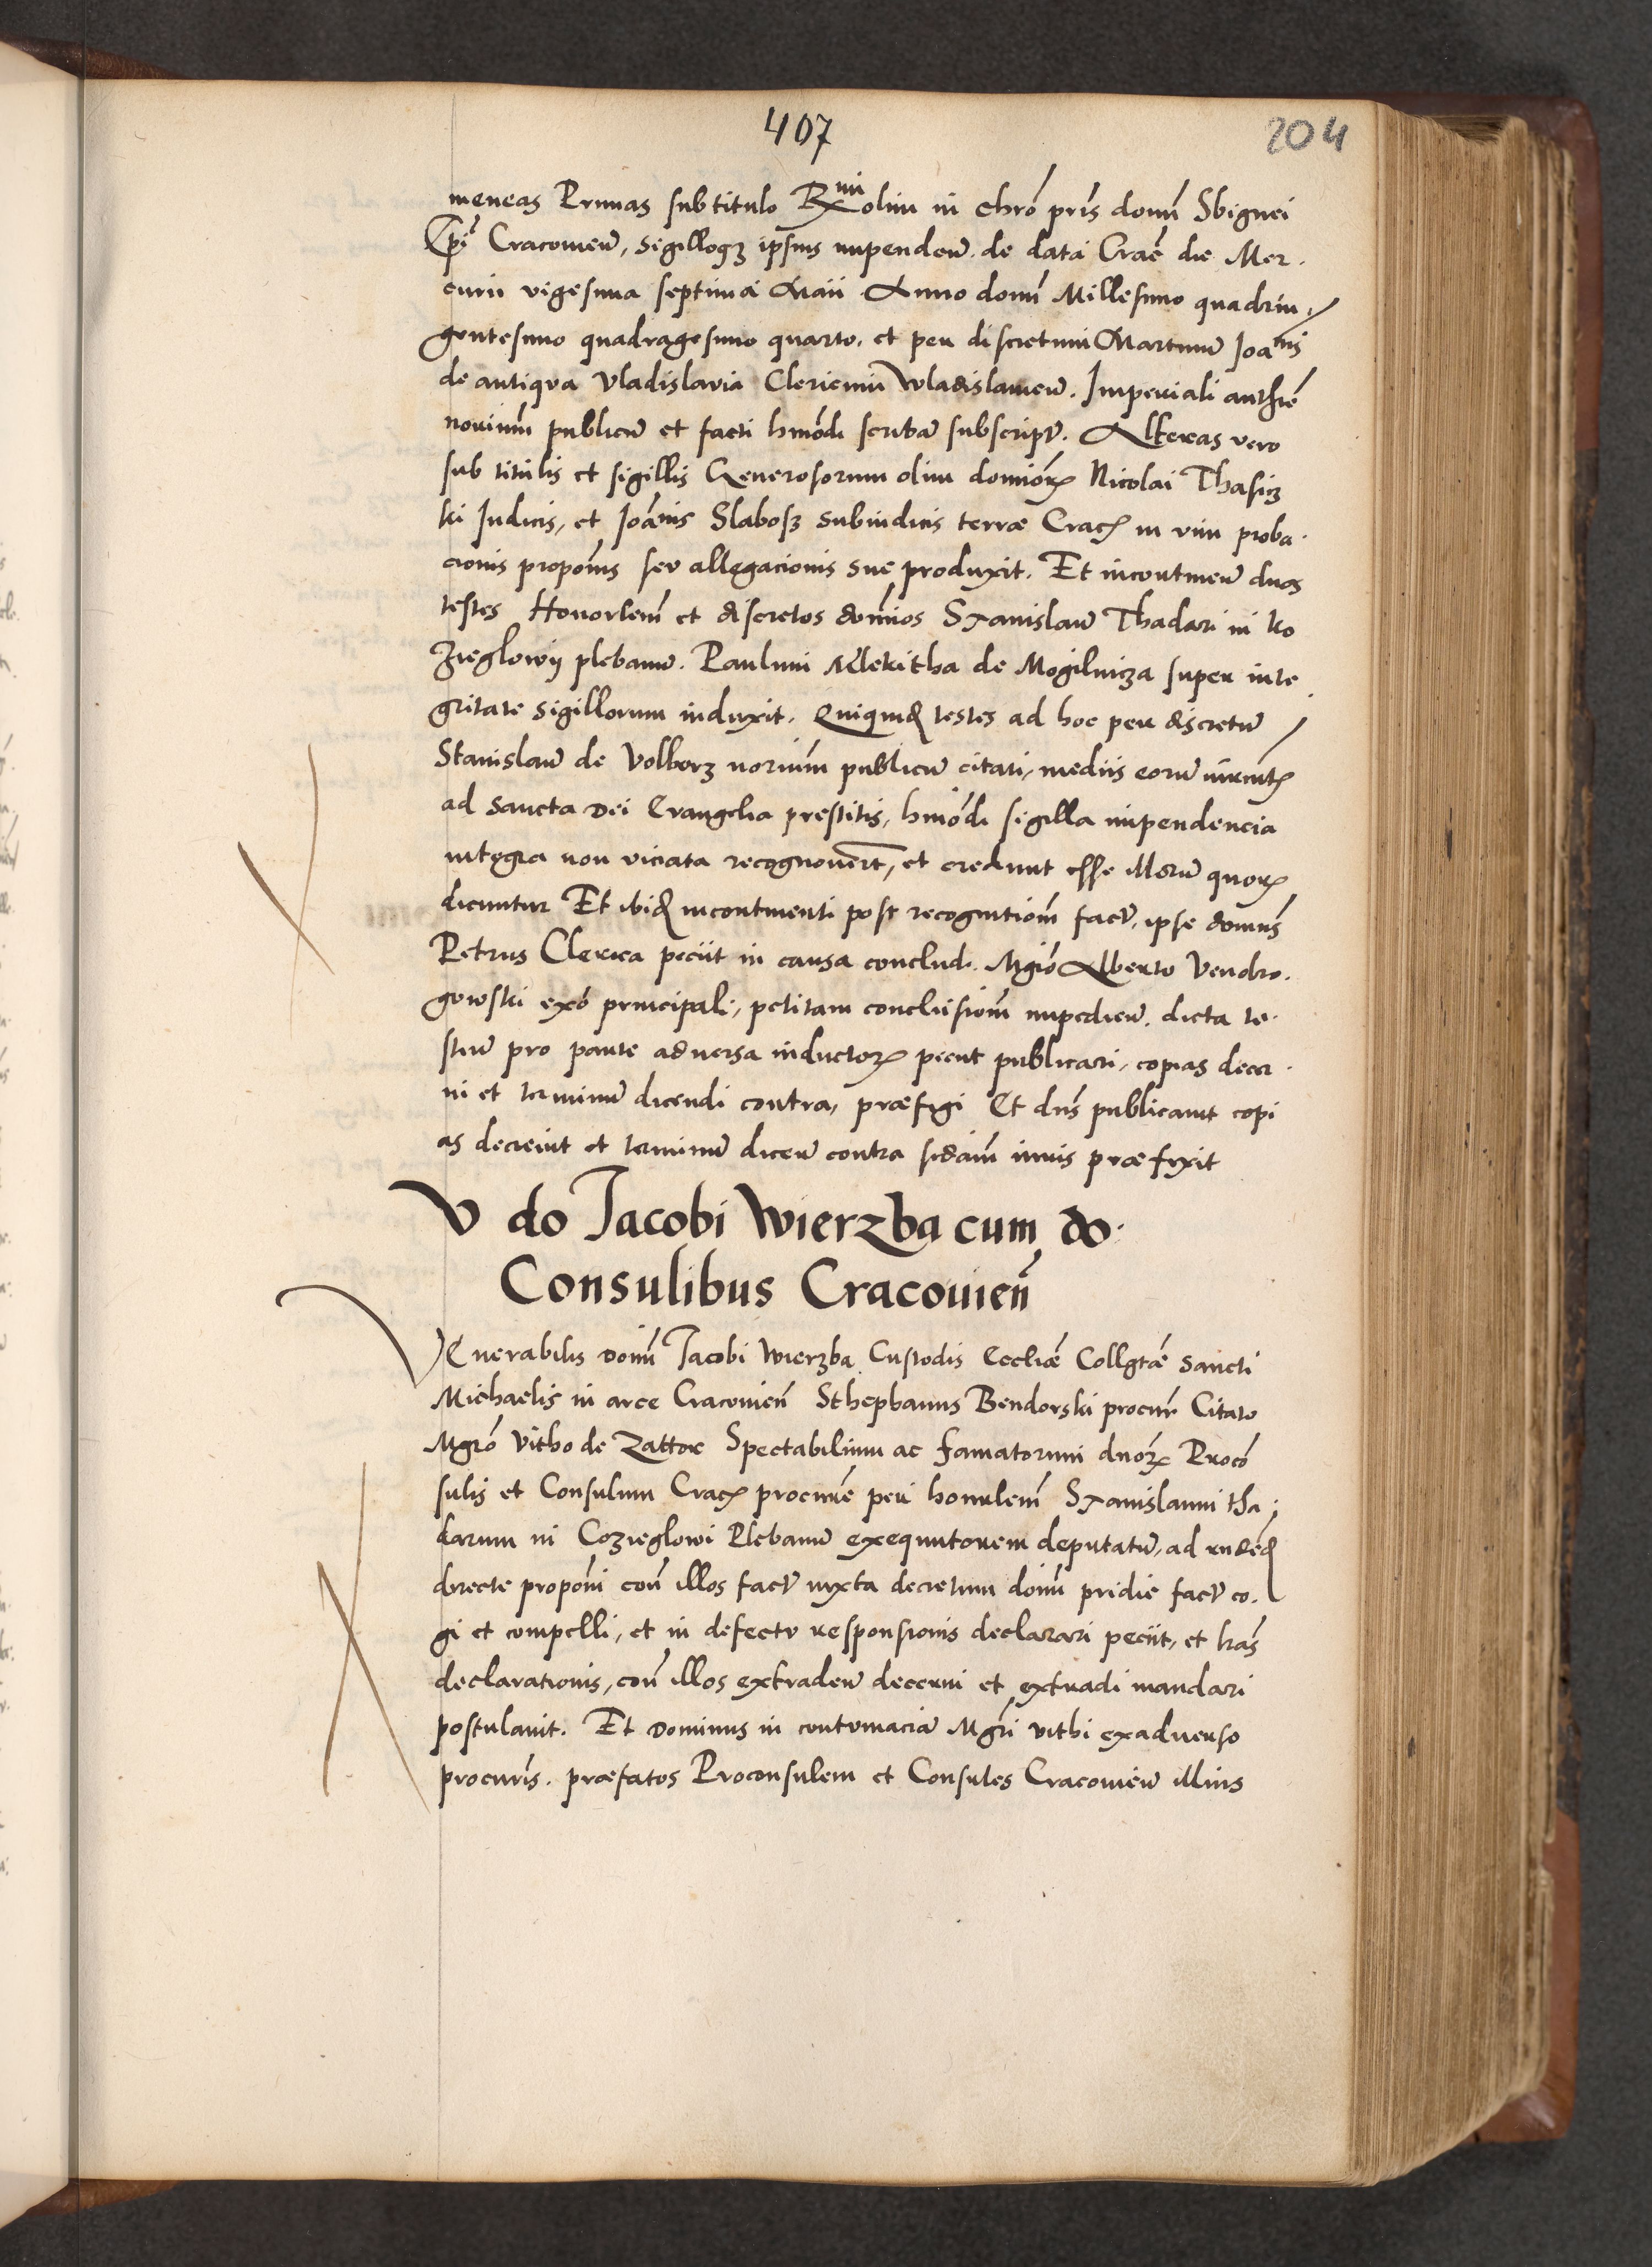 407
204
meneas Primas sub titulo Rmi olim in chrō pris domī Sbignei
Epī Cracovien̄, sigilloqȝ ipsius impenden̄. de data Craē die Mer-
curii vigesima septima Maii Anno domī Millesimo quadrin-
gentesimo quadragesimo quarto. et per discretum Martinū Joānis
de antiqua Vladislavia Clericum Wladislavien̄. Imperiali authē
norium̄ publicū et facti hmōdi scribā subscript̄. Alteras vero
sub titulis et sigillis Generosorum olim domiōrꝝ Nicolai Thasicz
ki Iudicis, et Joānnis Slabosz subiudicis terræ Cracꝝ in vim proba-
cionis propōnis seu allegacionis sue produxit. Et incontinen̄ duos
testes Honorlem̄ et discretos domīos Stanislaū Thadari in Ko
zieglowij plebanū. Paulum Mlekitha de Mogilnicza super inte
gritate sigillorum induxit. Quiquid testes ad hoc per discretū
Stanislaū de Volborz norium̄ publicū citati, mediis eorū iuramtꝭ
ad sancta Dei Evangelia prestitis, hmōdi sigilla impendencia
integra non viciata recognoverūt, et credunt esse illorū quorꝝ
dicuntur Et ibid incontinenti post recognitiom̄ fact̄, ipse domin̄s
Petrus Clerica peciit in causa concludi. Mgrō Alberto Vendro-
gowski exō principali, petitam conclusiom̄ impedien̄. dicta te-
stiū pro parte adversa inductorꝝ peciit publicari, copias decer-
ni et terminū dicendi contra, præfigi Et dn̄s publicavit copi
as decrevit et terminū dicen̄ contra scdam̄ iuris præfixit
V do Jacobi Wierzba cum do.
Consulibus Cracovien̄
VEnerabilis domī Jacobi Wierzba Custodis Eccliæ Collgtæ Sancti
Michaelis in arce Cracovien̄ Sthephanus Bendorski procur̄ Citato
Mgrō Vitho de Zattor Spectabilium ac famatorum dnōrꝝ Procō
sulis et Consulum Cracꝝ procurē per honorlem̄ Stanislaum tha-
darum in Cozieglowi Plebanū exequutorem deputatū, ad rndēd
directe propōni con̄ illos fact̄ iuxta decretum domī pridie fact̄ co-
gi et compelli, et in defectu responsionis declarari peciit, et lrās
declarationis, con̄ illos extraden̄ decerni et extradi mandari
postulavit. Et Dominus in contumaciā Mgrī Vithi exadverso
procuris. præfatos Proconsulem et Consules Cracovien̄ illius